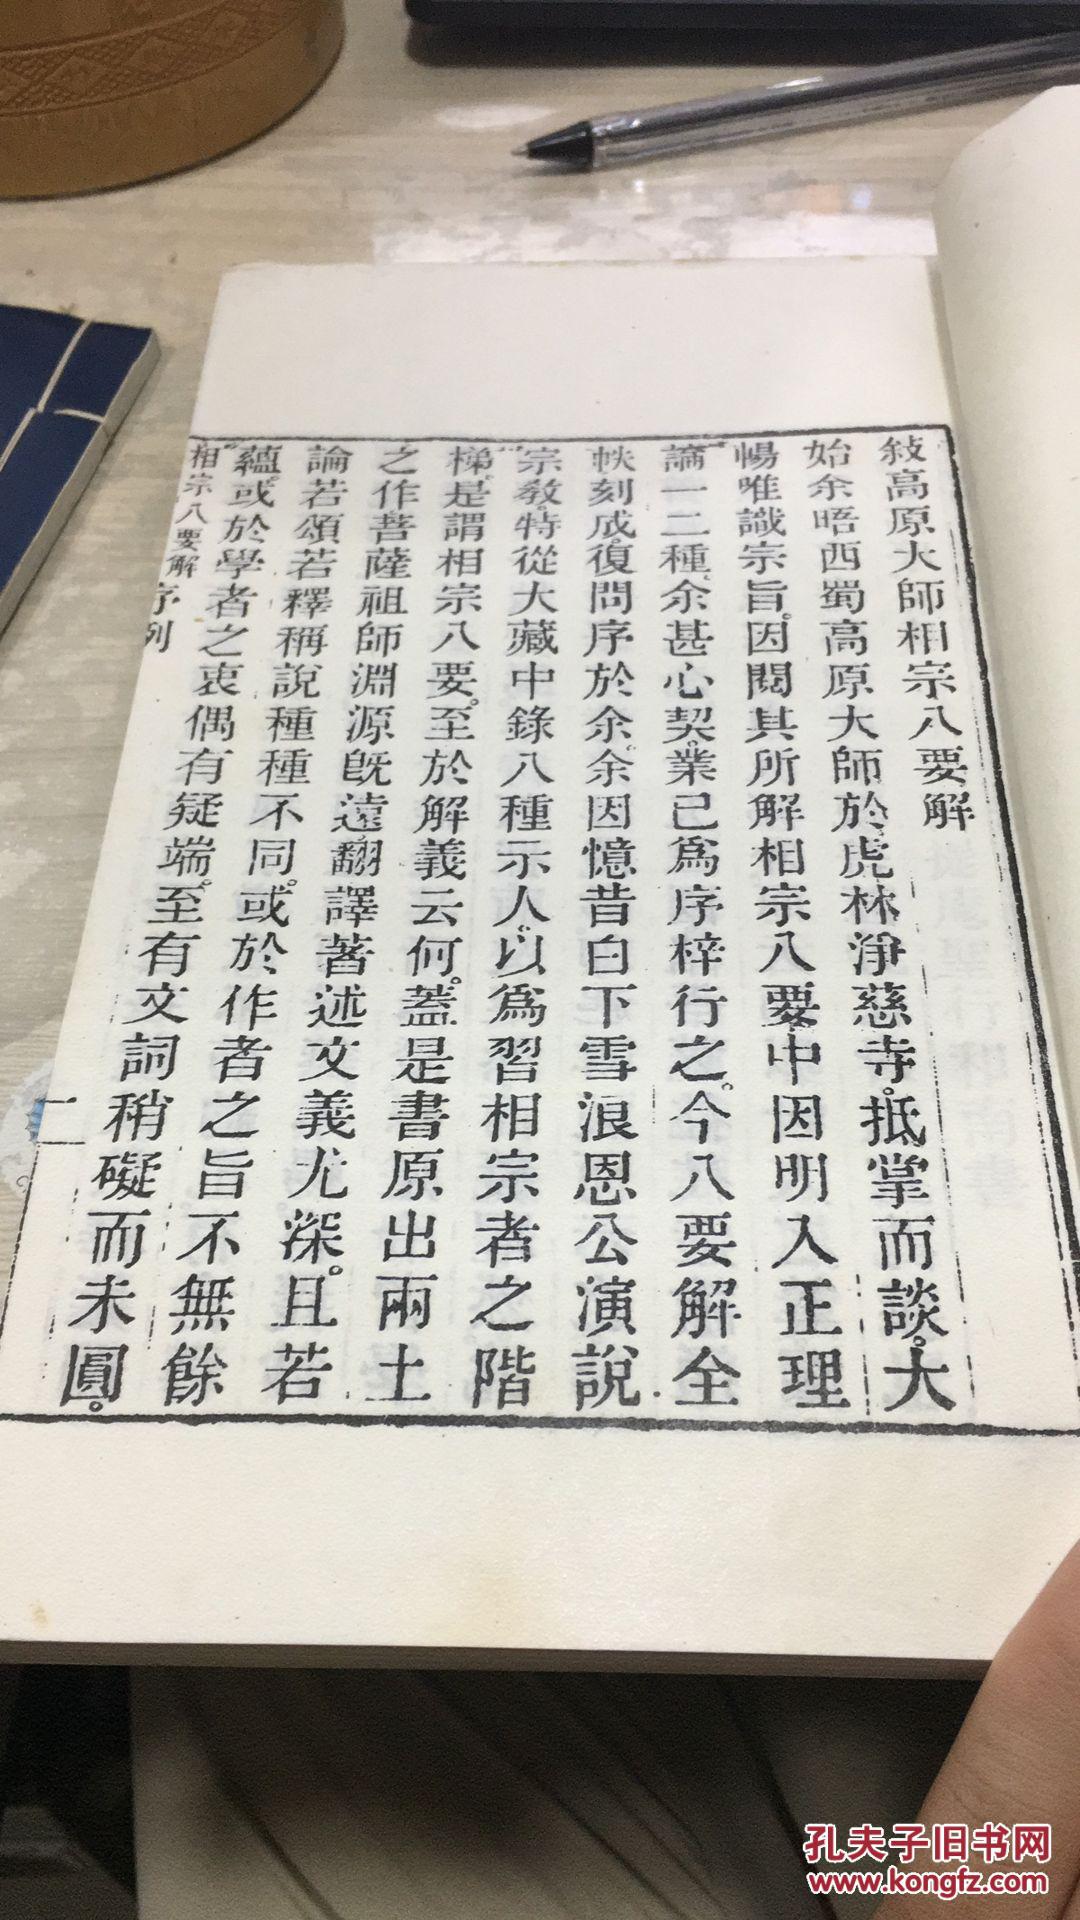 敍高原大師相宗八要解
始余晤西蜀高原大師於虎林淨慈寺。抵掌而談。大
暢唯識宗旨。因閱其所解相宗八要。中因明入正理
論一二種。余甚心契。業已爲序梓行之。今八要解全
帙刻成。復問序於余。余因憶昔白下雪浪恩公演說
宗敎。特從大藏中錄八種示人。以爲習相宗者之階
梯。是謂相宗八要。至於解義云何。蓋是書原出兩土
之作。菩薩祖師淵源旣遠。翻譯著述文義尤深。且若
論若頌若釋稱說種種不同。或於作者之旨不無餘
蘊。或於學者之衷偶有疑端。至有文詞稍礙而未圓。
相宗八要解 序 列 二
孔夫子旧书网
www.kongfz.com